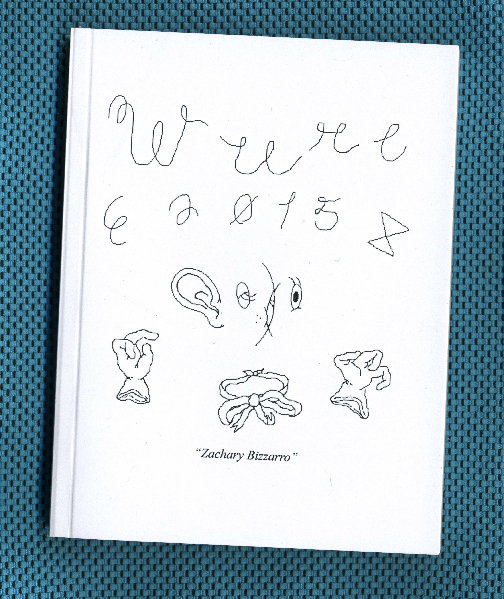 W u r e
2 0 1 5
“Zachary Bizzarro”